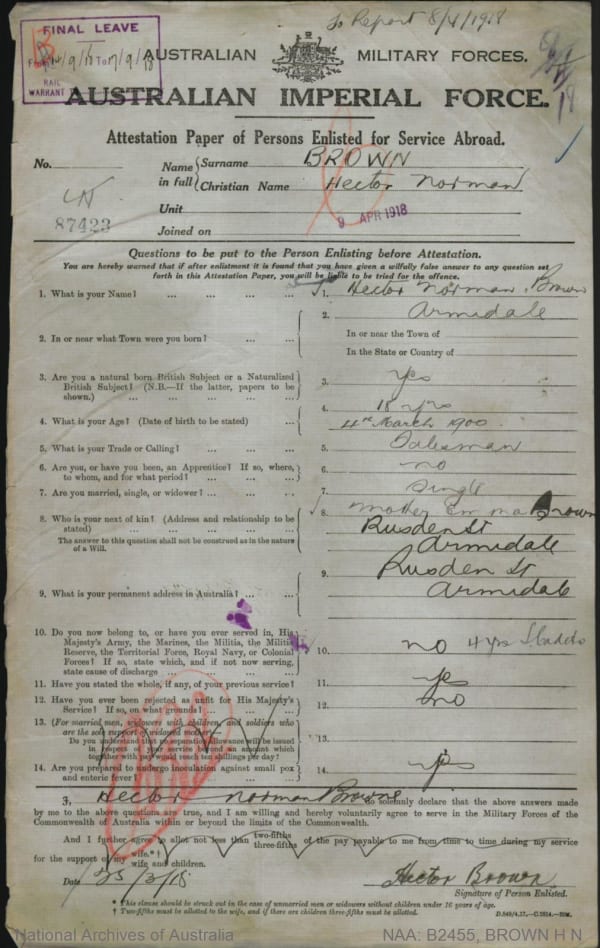 To Report 8/4/1918
FINAL LEAVE
RAIL
WARRANT
AUSTRALIAN MILITARY FORCES.
AUSTRALIAN IMPERIAL FORCE.
Attestation Paper of Persons Enlisted for Service Abroad.
No.
Name in full { Surname BROWN
Christian Name Hector Norman
87423
Unit
9 APR 1918
Joined on
Questions to be put to the Person Enlisting before Attestation.
You are hereby warned that if after enlistment it is found that you have given a wilfully false answer to any question set
forth in this Attestation Paper, you will be liable to be tried for the offence.
1. What is your Name? ... ... ... 1. Hector Norman Brown
2. In or near what Town were you born? ... ... 2. Armidale
In or near the Town of
In the State or Country of
3. Are you a natural born British Subject or a Naturalized
British Subject? (N.B.—If the latter, papers to be
shown.) ... ... ... 3. yes
4. What is your Age? (Date of birth to be stated) ... 4. 18 yrs
4th March 1900
5. What is your Trade or Calling? ... ... 5. Salesman
6. Are you, or have you been, an Apprentice? If so, where,
to whom, and for what period? ... ... 6. no
7. Are you married, single, or widower? ... ... 7. Single
8. Who is your next of kin? (Address and relationship to be
stated) ... ... ... 8. mother Emma Brown
Rusden St
The answer to this question shall not be construed as in the nature
of a Will.
Armidale
9. What is your permanent address in Australia? ... ... 9. Rusden St
Armidale
10. Do you now belong to, or have you ever served in, His
Majesty's Army, the Marines, the Militia, the Militia
Reserve, the Territorial Force, Royal Navy, or Colonial
Forces? If so, state which, and if not now serving,
state cause of discharge ... ... 10. no 4 yrs S Cadets
11. Have you stated the whole, if any, of your previous service? 11. yes
12. Have you ever been rejected as unfit for His Majesty's
Service? If so, on what grounds? ... ... 12. no
13. (For married men, widowers with children, and soldiers who
are the sole support of widowed mother—
Do you understand that no separation allowance will be issued
in respect of your service beyond an amount which
together with pay would reach ten shillings per day? 13.
14. Are you prepared to undergo inoculation against small pox
and enteric fever? ... ... 14. yes
I, Hector Norman Brown do solemnly declare that the above answers made
by me to the above questions are true, and I am willing and hereby voluntarily agree to serve in the Military Forces of the
Commonwealth of Australia within or beyond the limits of the Commonwealth.
And I further agree to allot not less than two-fifths three-fifths of the pay payable to me from time to time during my service
for the support of my wife.*† wife and children.
Date 25/3/18
Hector Brown
Signature of Person Enlisted.
* This clause should be struck out in the case of unmarried men or widowers without children under 16 years of age.
† Two-fifths must be allotted to the wife, and if there are children three-fifths must be allotted.
National Archives of Australia
NAA: B2455, BROWN H N